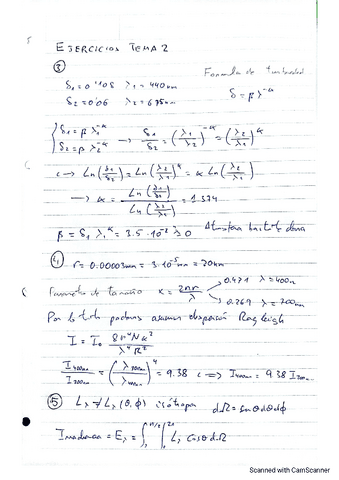 EJERCICIOS TEMA 2
③
δ₁=0'108 λ₁=440nm
Formula de turbiedad
δ₂=0'06 λ₂=675nm
δ=βλ^-α
{δ₁=βλ₁^-α
δ₂=βλ₂^-α → δ₁/δ₂=(λ₁/λ₂)^-α=(λ₂/λ₁)^α
↳ Ln(δ₁/δ₂)=Ln(λ₂/λ₁)^α=α Ln(λ₂/λ₁)
→ α=Ln(δ₁/δ₂)/Ln(λ₂/λ₁)=1.374
β=δ₁λ₁^α=3.5·10^-2 ≥0 Atmósfera bastante
④ r=0.00003mm=3·10^-5mm=
Parametro de tamaño x=2πr/λ
0.471 λ=400nm
0.269 λ=700nm
Por lo tanto podemos asumir dispersión Rayleigh
I=I₀
I400nm/I700nm=(λ700nm/λ400nm)^4=9.38 ⇔ I400nm=9.38 I700nm
⑤ Lλ≠Lλ(θ,ϕ) isótropa dΩ=senθdθdϕ
Irradiancia=Eλ=∫₀^π/2∫₀^2π Lλ cosθdΩ
Scanned with CamScanner